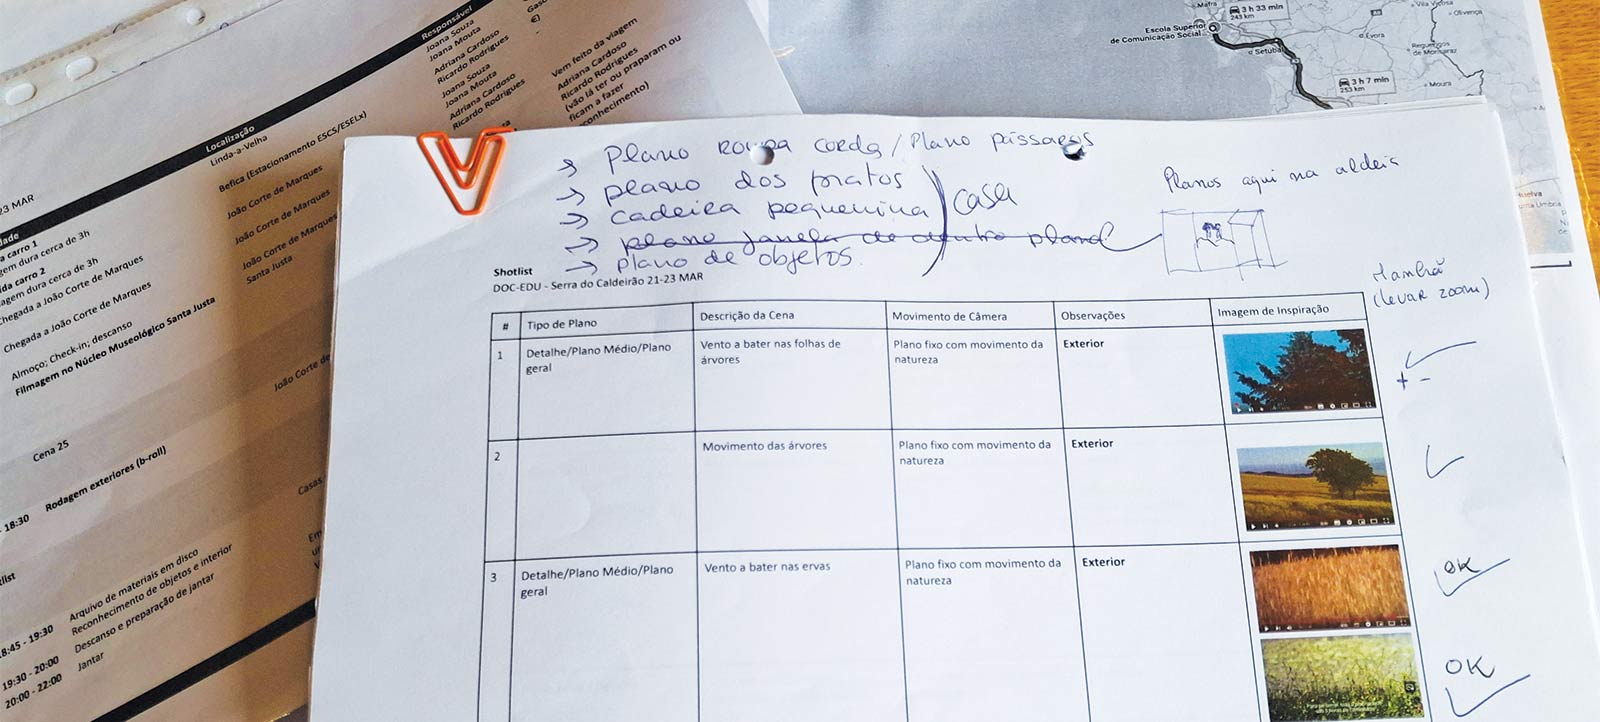 Responsável
Joana Souza
Joana Mouta
Adriana Cardoso
Ricardo Rodrigues
Joana Souza
Joana Mouta
Adriana Cardoso
Ricardo Rodrigues
€)
Vem feito da viagem
Adriana Cardoso
Ricardo Rodrigues
(vão lá ter ou praparam ou
ficam a fazer
reconhecimento)
Localização
Linda-a-Velha
Befica (Estacionamento ESCS/ESELx)
João Corte de Marques
João Corte de Marques
João Corte de Marques
Santa Justa
23 MAR
carro 1
gem dura cerca de 3h
carro 2
agem dura cerca de 3h
Chegada a João Corte de Marques
Chegada a João Corte de Marques
Almoço; Check-in; descanso
Filmagem no Núcleo Museológico Santa Justa
João Corte de
Cena 25
- 18:30 Rodagem exteriores (b-roll)
Casas
18:45 - 19:30 Arquivo de materiais em disco
Reconhecimento de objetos e interior
19:30 - 20:00 Descanso e preparação de jantar
20:00 - 22:00 Jantar
Mafra
3 h 33 min
243 km
Escola Superior
de Comunicação Social
Setúbal
Évora
Vila Viçosa
Olivença
Reguengos
de Monsaraz
3 h 7 min
253 km
Moura
Huelva
Punta Umbría
→ Plano roupa corda / Plano pássaros
→ plano dos pratos
→ cadeira pequenina
→ plano janela de dentro plano?
→ plano de objetos.
casa
Planos aqui na aldeia
Manhã
(levar zoom)
Shotlist
DOC-EDU - Serra do Caldeirão 21-23 MAR
# Tipo de Plano Descrição da Cena Movimento de Câmera Observações Imagem de Inspiração
1 Detalhe/Plano Médio/Plano geral Vento a bater nas folhas de árvores Plano fixo com movimento da natureza Exterior
+ -
2 Movimento das árvores Plano fixo com movimento da natureza Exterior
3 Detalhe/Plano Médio/Plano geral Vento a bater nas ervas Plano fixo com movimento da natureza Exterior
OK
OK